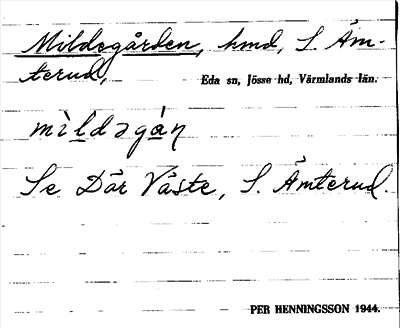 Mildegården, hmd, S. Äm-
terud,
Eda sn, Jösse hd, Värmlands län.
mìl̠dəgá̠ɳ
Se Där Väste, S. Ämterud.
PER HENNINGSSON 1944.